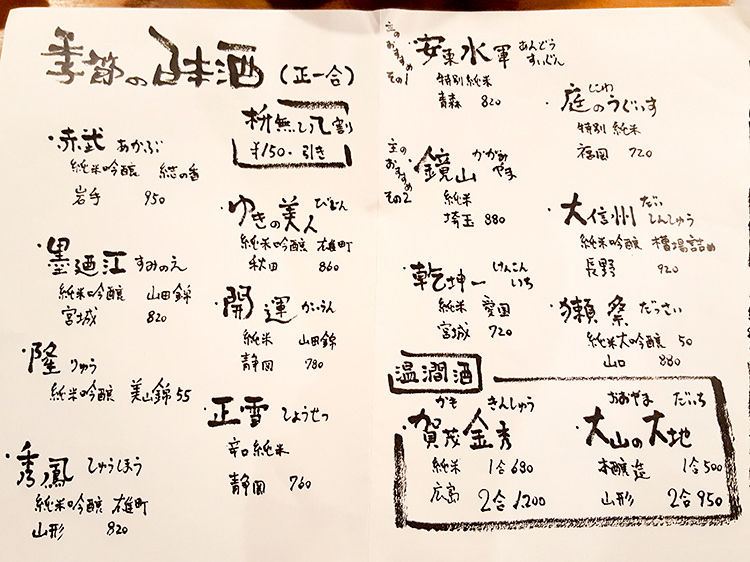 季節の日本酒 (正一合)
枡無しで割
¥150.引き
・赤武 あかぶ
純米吟醸 結の香
岩手 950
・墨廼江 すみのえ
純米吟醸 山田錦
宮城 820
・隆 りゅう
純米吟醸 美山錦55
・秀鳳 しゅうほう
純米吟醸 雄町
山形 820
・ゆきの美人 びじん
純米吟醸 雄町
秋田 860
・開運 かいうん
純米 山田錦
静岡 780
・正雪 しょうせつ
辛口純米
静岡 760
主のおすすめその1
・安東水軍 あんどうすいぐん
特別純米
青森 820
主のおすすめその2
・鏡山 かがみやま
純米
埼玉 880
・乾坤一 けんこんいち
純米 愛国
宮城 720
・庭のうぐいす にわ
特別純米
福岡 720
・大信州 だいしんしゅう
純米吟醸 槽場詰め
長野 920
・獺祭 だっさい
純米大吟醸 50
山口 880
温澗酒
・賀茂金秀 かもきんしゅう
純米 1合680
広島 2合1,200
・大山の大地 おおやま だいち
本醸造 1合500
山形 2合950